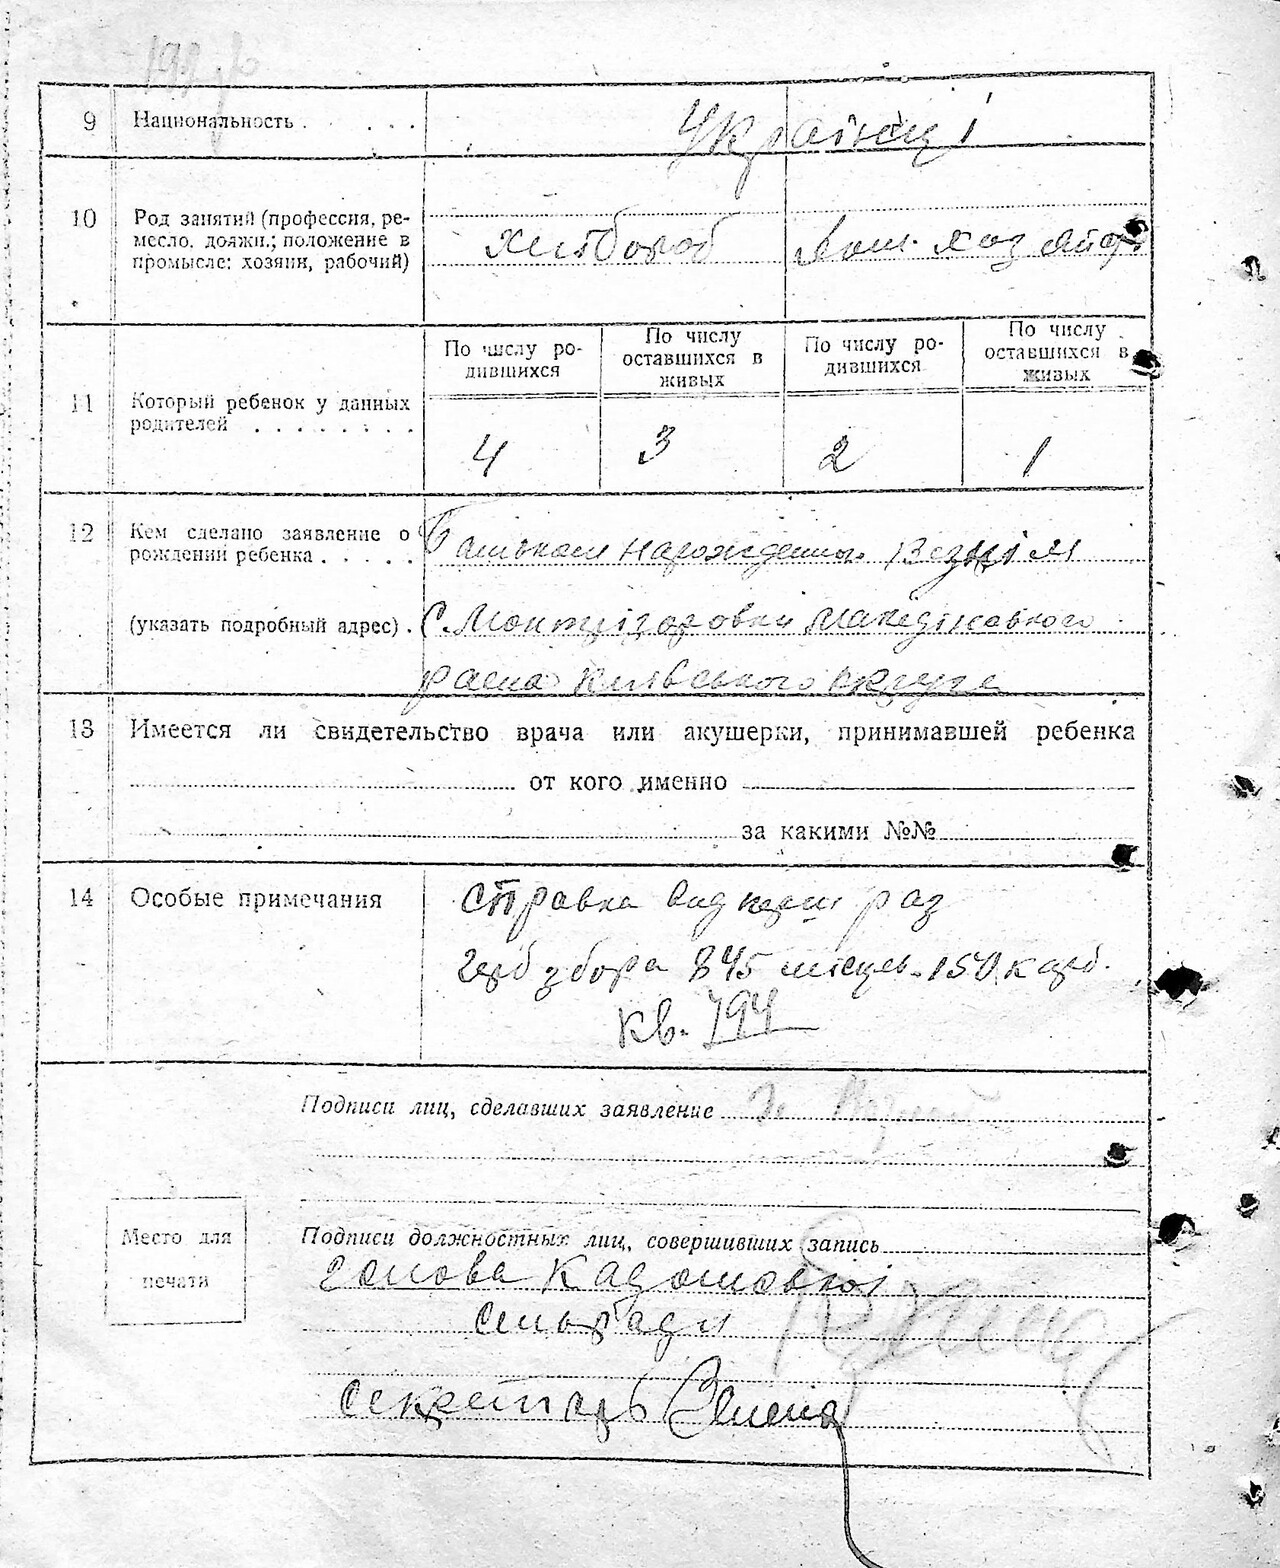 9 Национальность . . . . .
Українці
10 Род занятий (профессия, ре-
месло, должн.; положение в
промысле: хозяин, рабочий)
хлібороб
дом. хоз
11 Который ребенок у данных
родителей . . . . . . . .
По числу ро-
дившихся
По числу
оставшихся в
живых
По числу ро-
дившихся
По числу
оставшихся в
живых
4 3 2 1
12 Кем сделано заявление о
рождении ребенка . . . . .
Батьком
(указать подробный адрес) .
С.
раена Київського округа
13 Имеется ли свидетельство врача или акушерки, принимавшей ребенка
от кого именно
за какими №№
14 Особые примечания
справка раз
герб збора 845 150 карб.
Кв. 794
Подписи лиц, сделавших заявление
Место для
печати
Подписи должностных лиц, совершивших запись
голова
сільради
секретарь